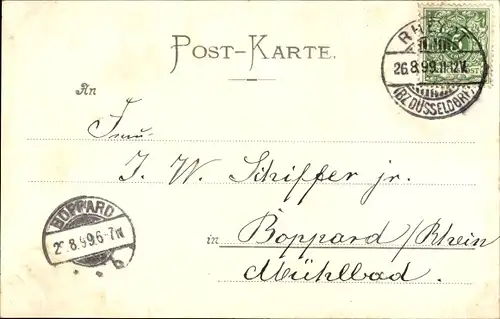 POST-KARTE.
RHE
26.8.99.11-12V.
(BZ DÜSSELDORF)
An
Frau
J. W. Schiffer jr.
BOPPARD
8.99.6-7N
b
in Boppard/Rhein
Mühlbad.